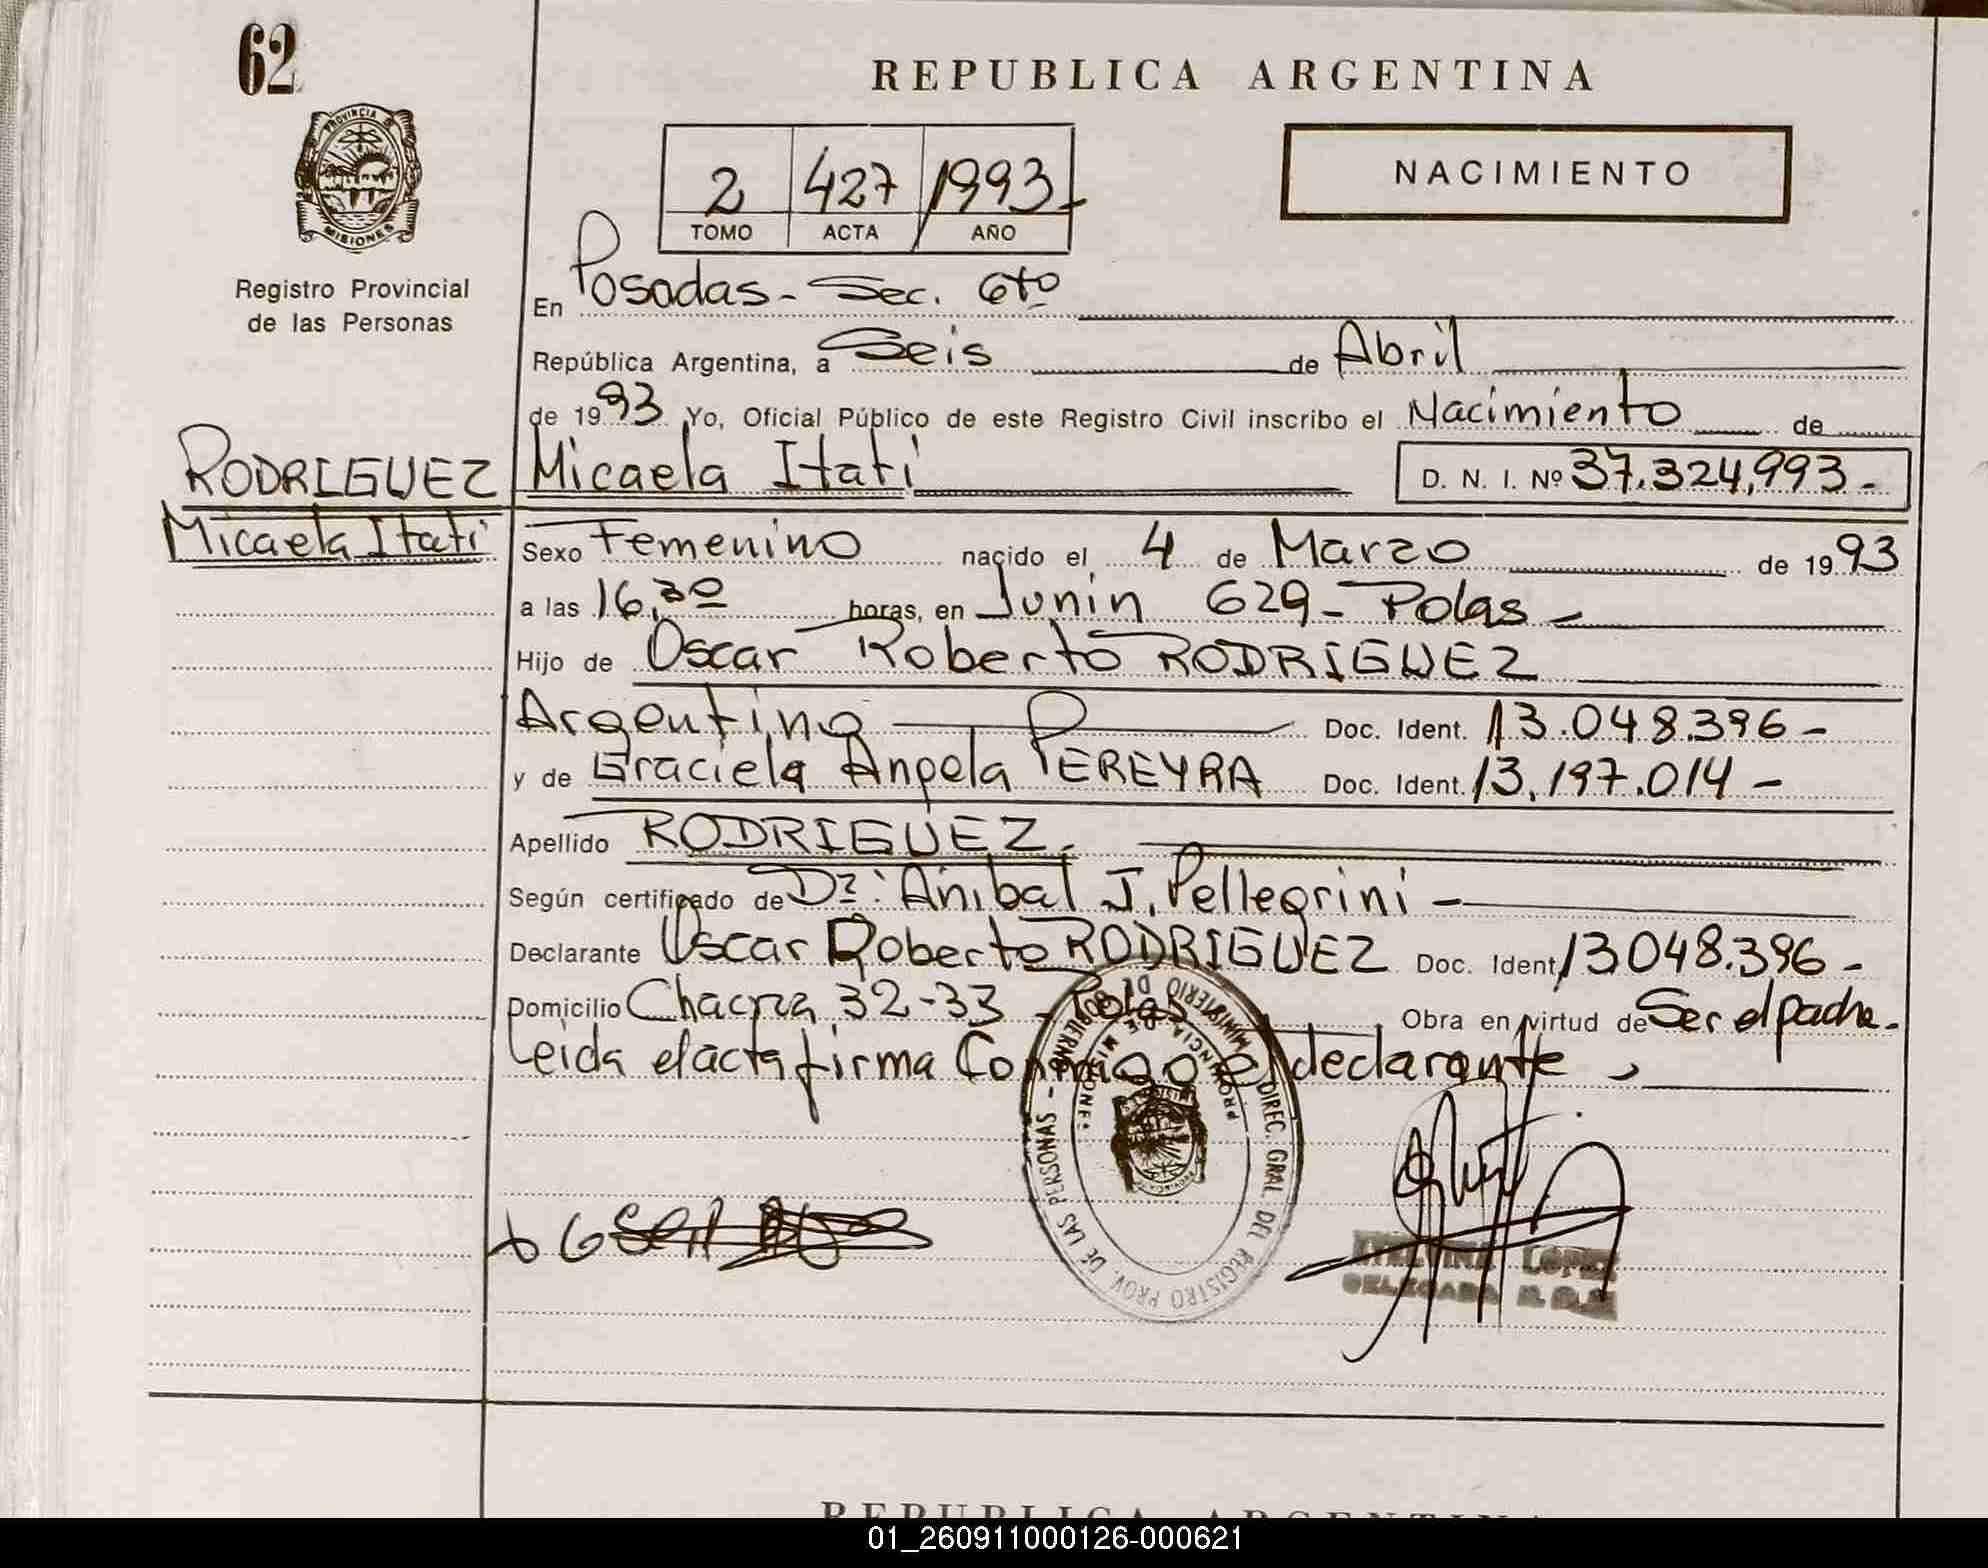 62
REPUBLICA ARGENTINA
PROVINCIA D
MISIONES
Registro Provincial
de las Personas
2 427 1993
TOMO ACTA AÑO
NACIMIENTO
En Posadas - Sec. 6to
República Argentina, a Seis de Abril
de 1993 Yo, Oficial Público de este Registro Civil inscribo el Nacimiento de
RODRIGUEZ Micaela Itati D. N. I. Nº 37.324.993-
Micaela Itati Sexo Femenino nacido el 4 de Marzo de 1993
a las 16,30 horas, en Junin 629 - Pdas -
Hijo de Oscar Roberto RODRIGUEZ
Argentino Doc. Ident. 13.048.396-
y de Graciela Angela PEREYRA Doc. Ident. 13.197.014-
Apellido RODRIGUEZ.
Según certificado de Dr: Anibal J. Pellegrini -
Declarante Oscar Roberto RODRIGUEZ Doc. Ident. 13048.396-
Domicilio Chacra 32-33 - Pdas Obra en virtud de Ser el padre.
Leida el acta firma Conmigo el declarante
MINISTERIO DE GOBIERNO
DIREC. GRAL. DEL REGISTRO PROV. DE LAS PERSONAS -
PROVINCIA DE MISIONES
LOPEZ
REPUBLICA ARGENTINA
01_260911000126-000621